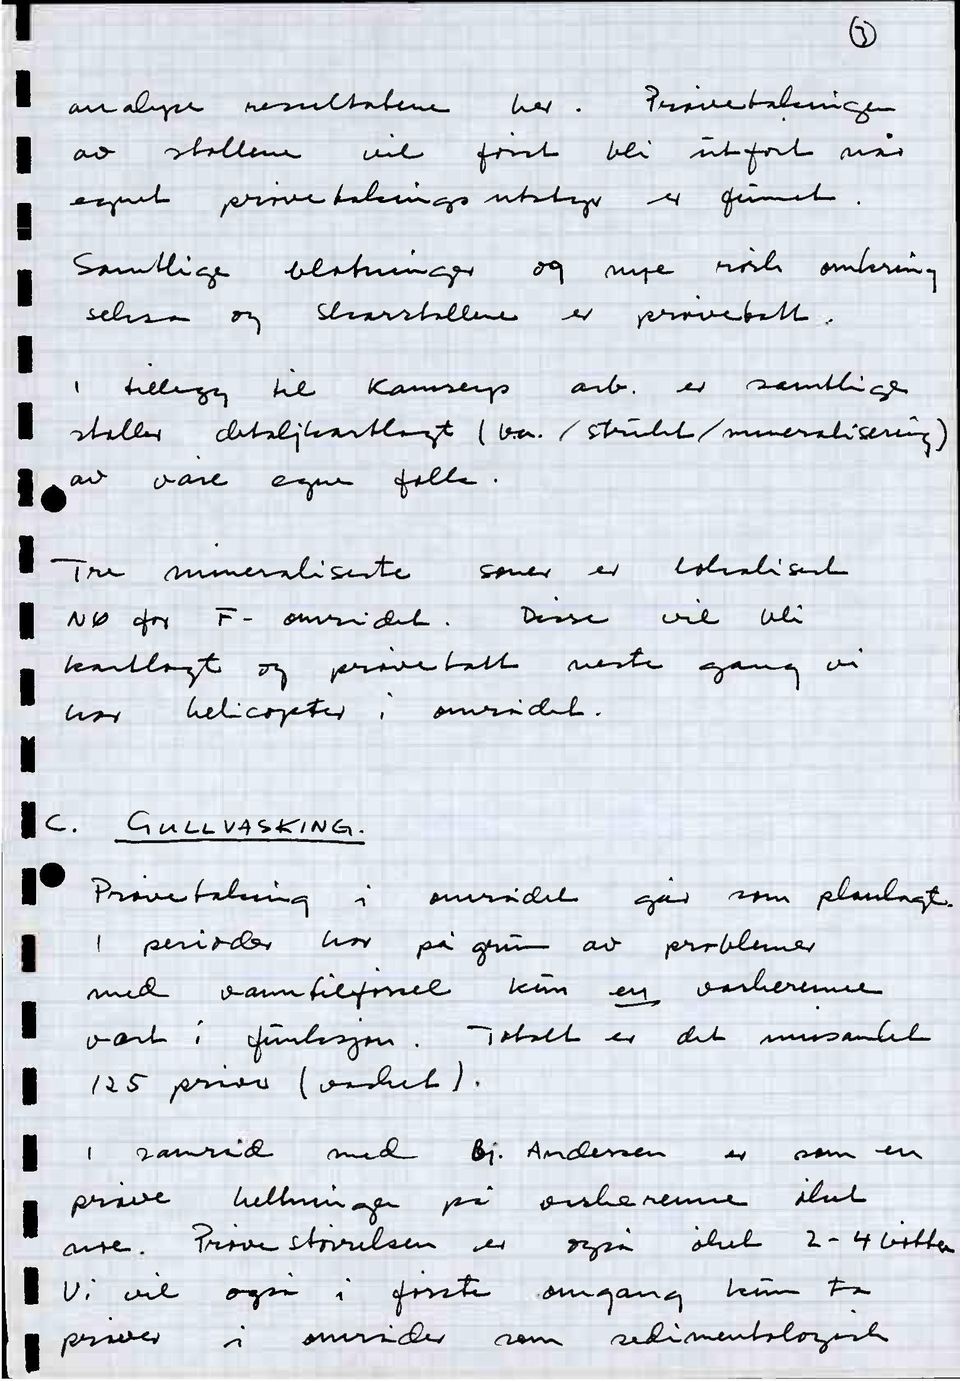 3
analyse resultatene her. Prøvetakningen
av stollene vil først bli utført når
egnet prøvetaknings utstyr er funnet.
Samtlige blotninger og mye røsk omkring
seksa og Skarstollene er prøvetatt.
I tillegg til Kamserps arb. er samtlige
stoller detaljkartlagt ( / strukt / mineralisering)
av våre egne folk.
Tre mineraliserte soner er lokalisert
NØ for F- området. Disse vil bli
kartlagt og prøvetatt neste gang vi
har helicopter i området.
C. GULLVASKING.
Prøvetakning i området går som planlagt.
I perioder har på grunn av problemer
med vanntilførsel kun en vaskerenne
vært i funksjon. Totalt er det innsamlet
125 prøver (vasket).
I samråd med Bj. Andersen er som en
prøve heltningen på vaskerenne øket
noe. Prøve størrelsen er også øket 2-4 bøtter
Vi vil også i første omgang kun ta
prøver i områder som sedimentologisk